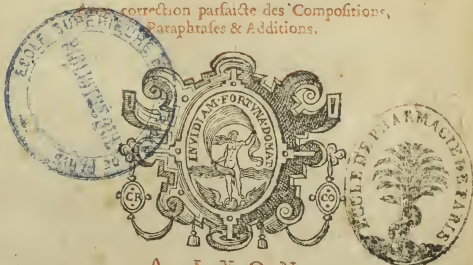 correction parfaicte des Compositions,
Paraphrases & Additions.
ECOLE SUPERIEURE DE
PHARMACIE
DE PARIS
INVIDIAM·FORTVNA·DOMAT
CR
CO
ECOLE DE PHARMACIE DE PARIS
A LYON,